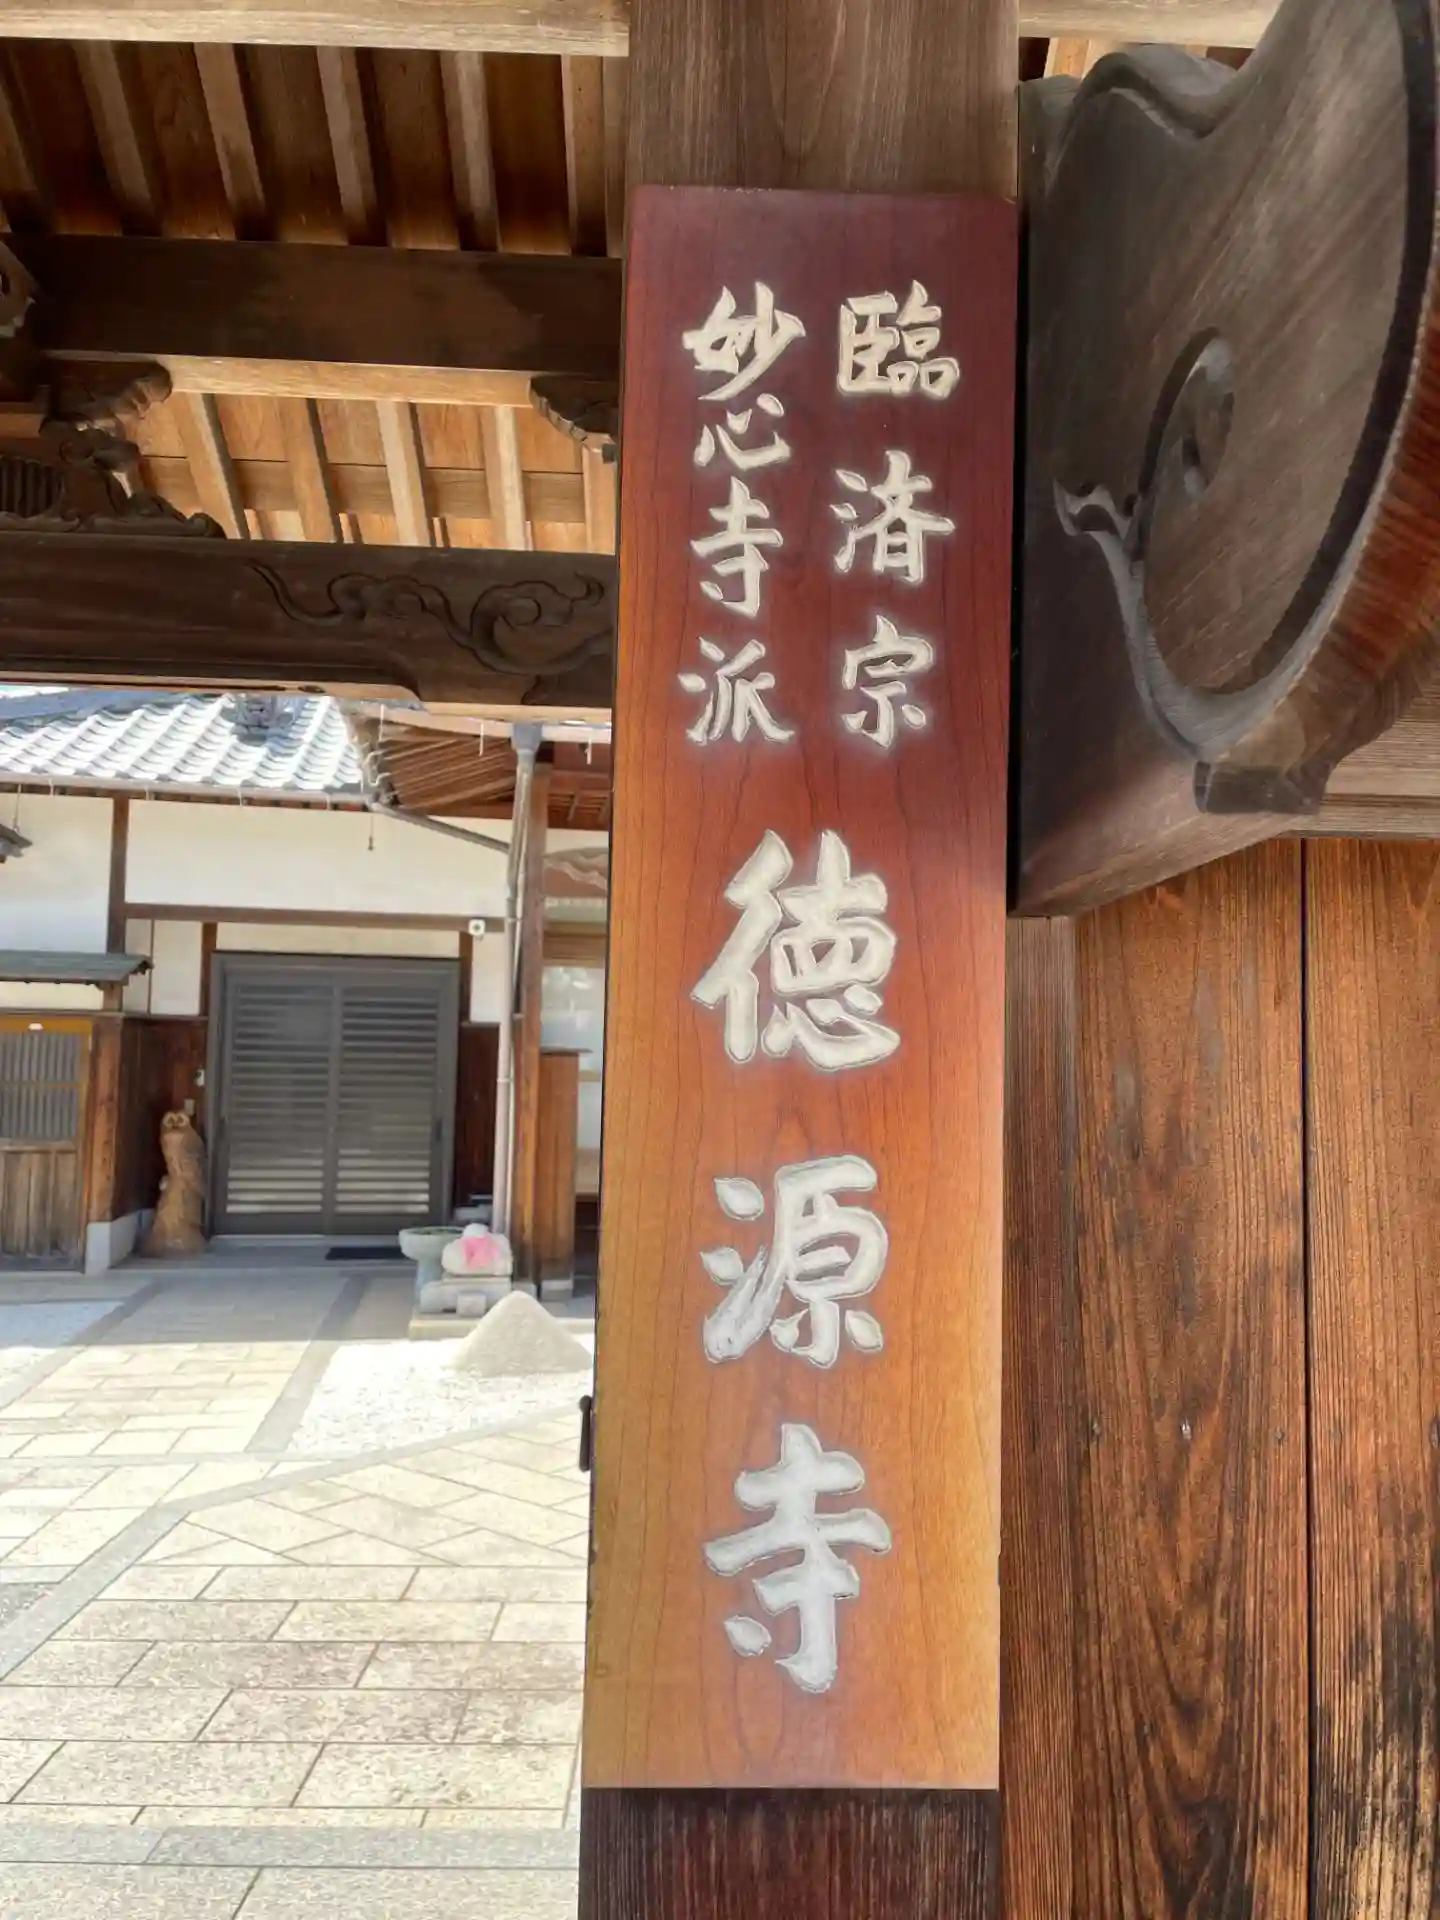 臨済宗
妙心寺派
徳源寺